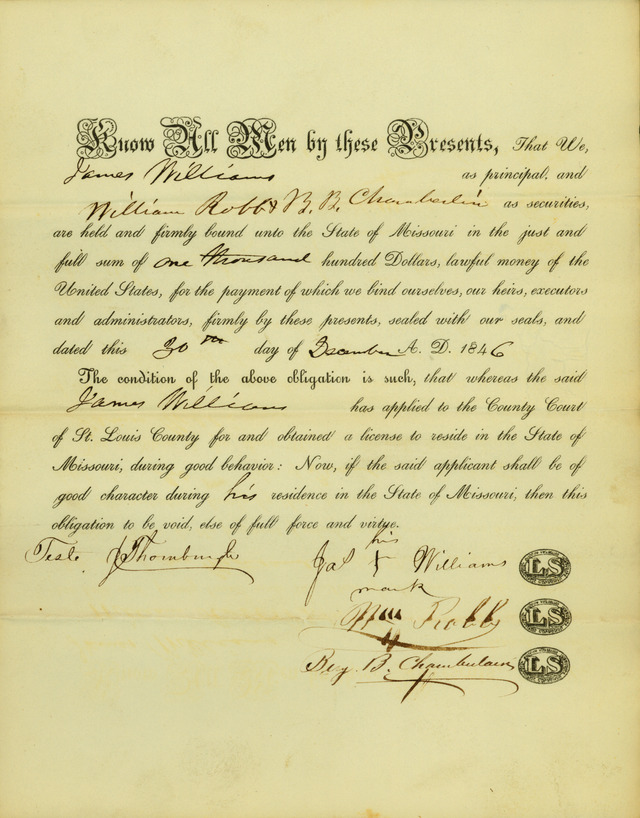 Know All Men by these Presents, That We,
James Williams as principal, and
William Robb & B. B. Chamberlin as securities,
are held and firmly bound unto the State of Missouri in the just and
full sum of one thousand hundred Dollars, lawful money of the
United States, for the payment of which we bind ourselves, our heirs, executors
and administrators, firmly by these presents, sealed with our seals, and
dated this 30th day of December A. D. 1846
The condition of the above obligation is such, that whereas the said
James Williams has applied to the County Court
of St. Louis County for and obtained a license to reside in the State of
Missouri, during good behavior: Now, if the said applicant shall be of
good character during his residence in the State of Missouri, then this
obligation to be void, else of full force and virtue.
his
Test. J Thornburgh Jas + Williams LS
mark
Wm Robb LS
B. Chamberlain LS